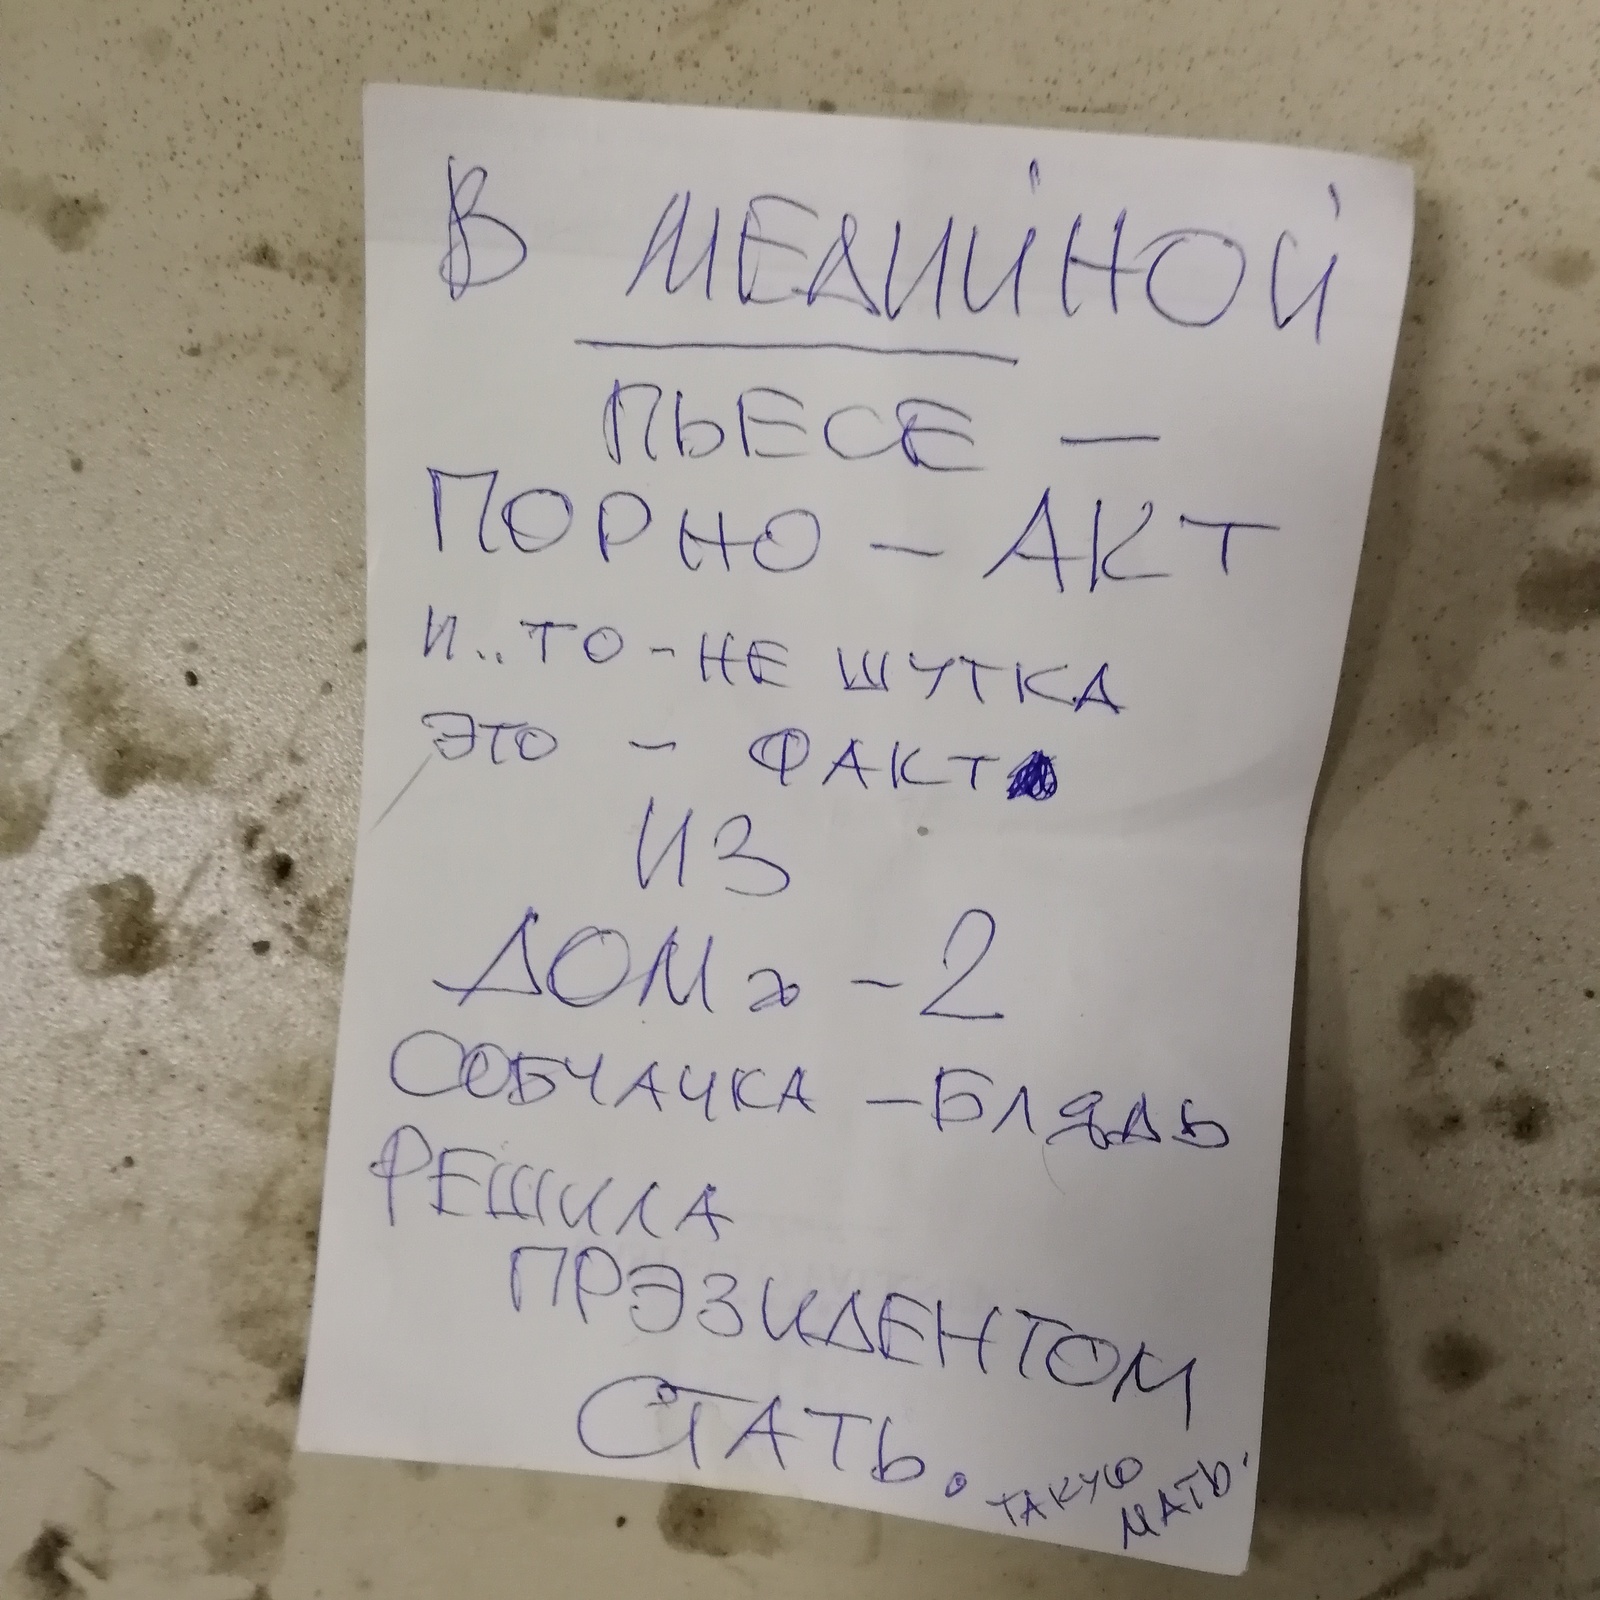 В МЕДИЙНОЙ
ПЬЕСЕ —
ПОРНО – АКТ
И.. ТО – НЕ ШУТКА
ЭТО – ФАКТ
ИЗ
ДОМа – 2
СОБЧАЧКА – БЛЯДЬ
РЕШИЛА
ПРЭЗИДЕНТОМ
СТАТЬ.
ТАКУЮ
МАТЬ.